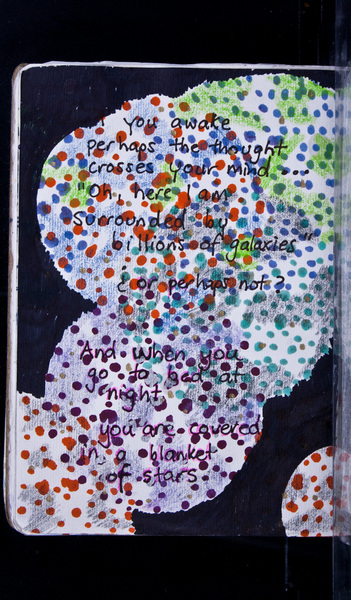 you awake
perhaps the thought
crosses your mind ...
"Oh, here I am
surrounded by
billions of galaxies"
¿ or perhaps not ?
And when you
go to bed at
night
you are covered
in a blanket
of stars